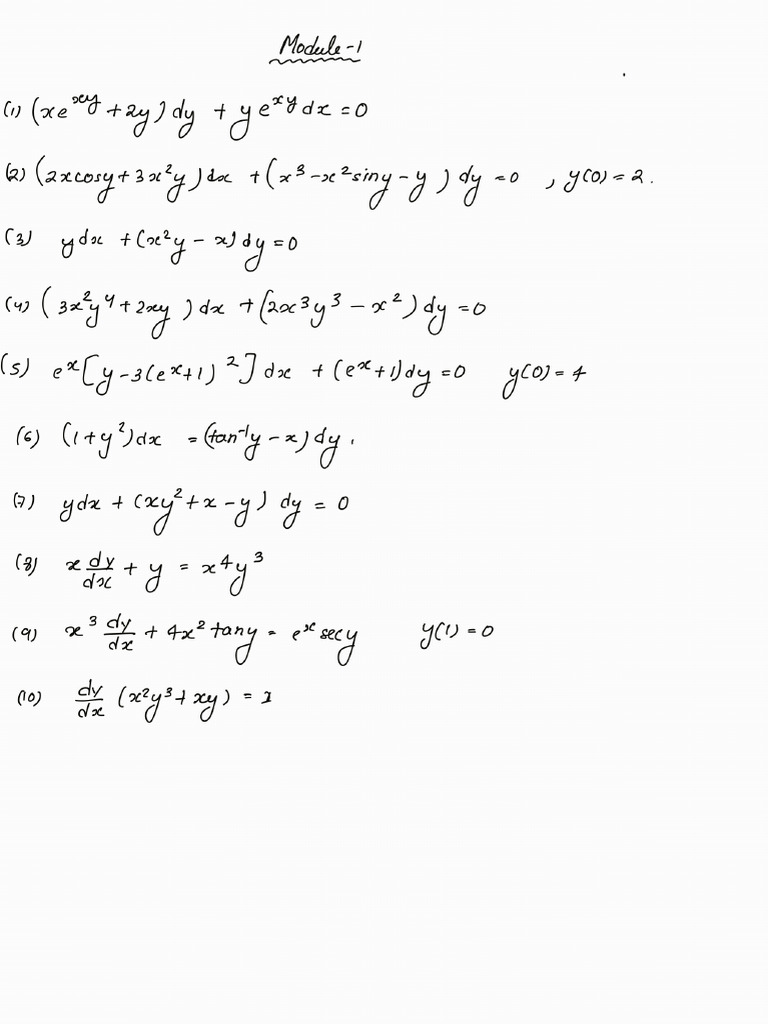 Module-1
(1) (xe^{xy} + 2y) dy + y e^{xy} dx = 0
(2) (2x cosy + 3x²y) dx + (x³ - x² siny - y) dy = 0 , y(0) = 2.
(3) y dx + (x²y - x) dy = 0
(4) (3x²y⁴ + 2xy) dx + (2x³y³ - x²) dy = 0
(5) e^x [y - 3(e^x + 1)²] dx + (e^x + 1) dy = 0 y(0) = 4
(6) (1 + y²) dx = (tan⁻¹y - x) dy.
(7) y dx + (xy² + x - y) dy = 0
(8) x dy/dx + y = x⁴y³
(9) x³ dy/dx + 4x² tany = e^x secy y(1) = 0
(10) dy/dx (x²y³ + xy) = 1